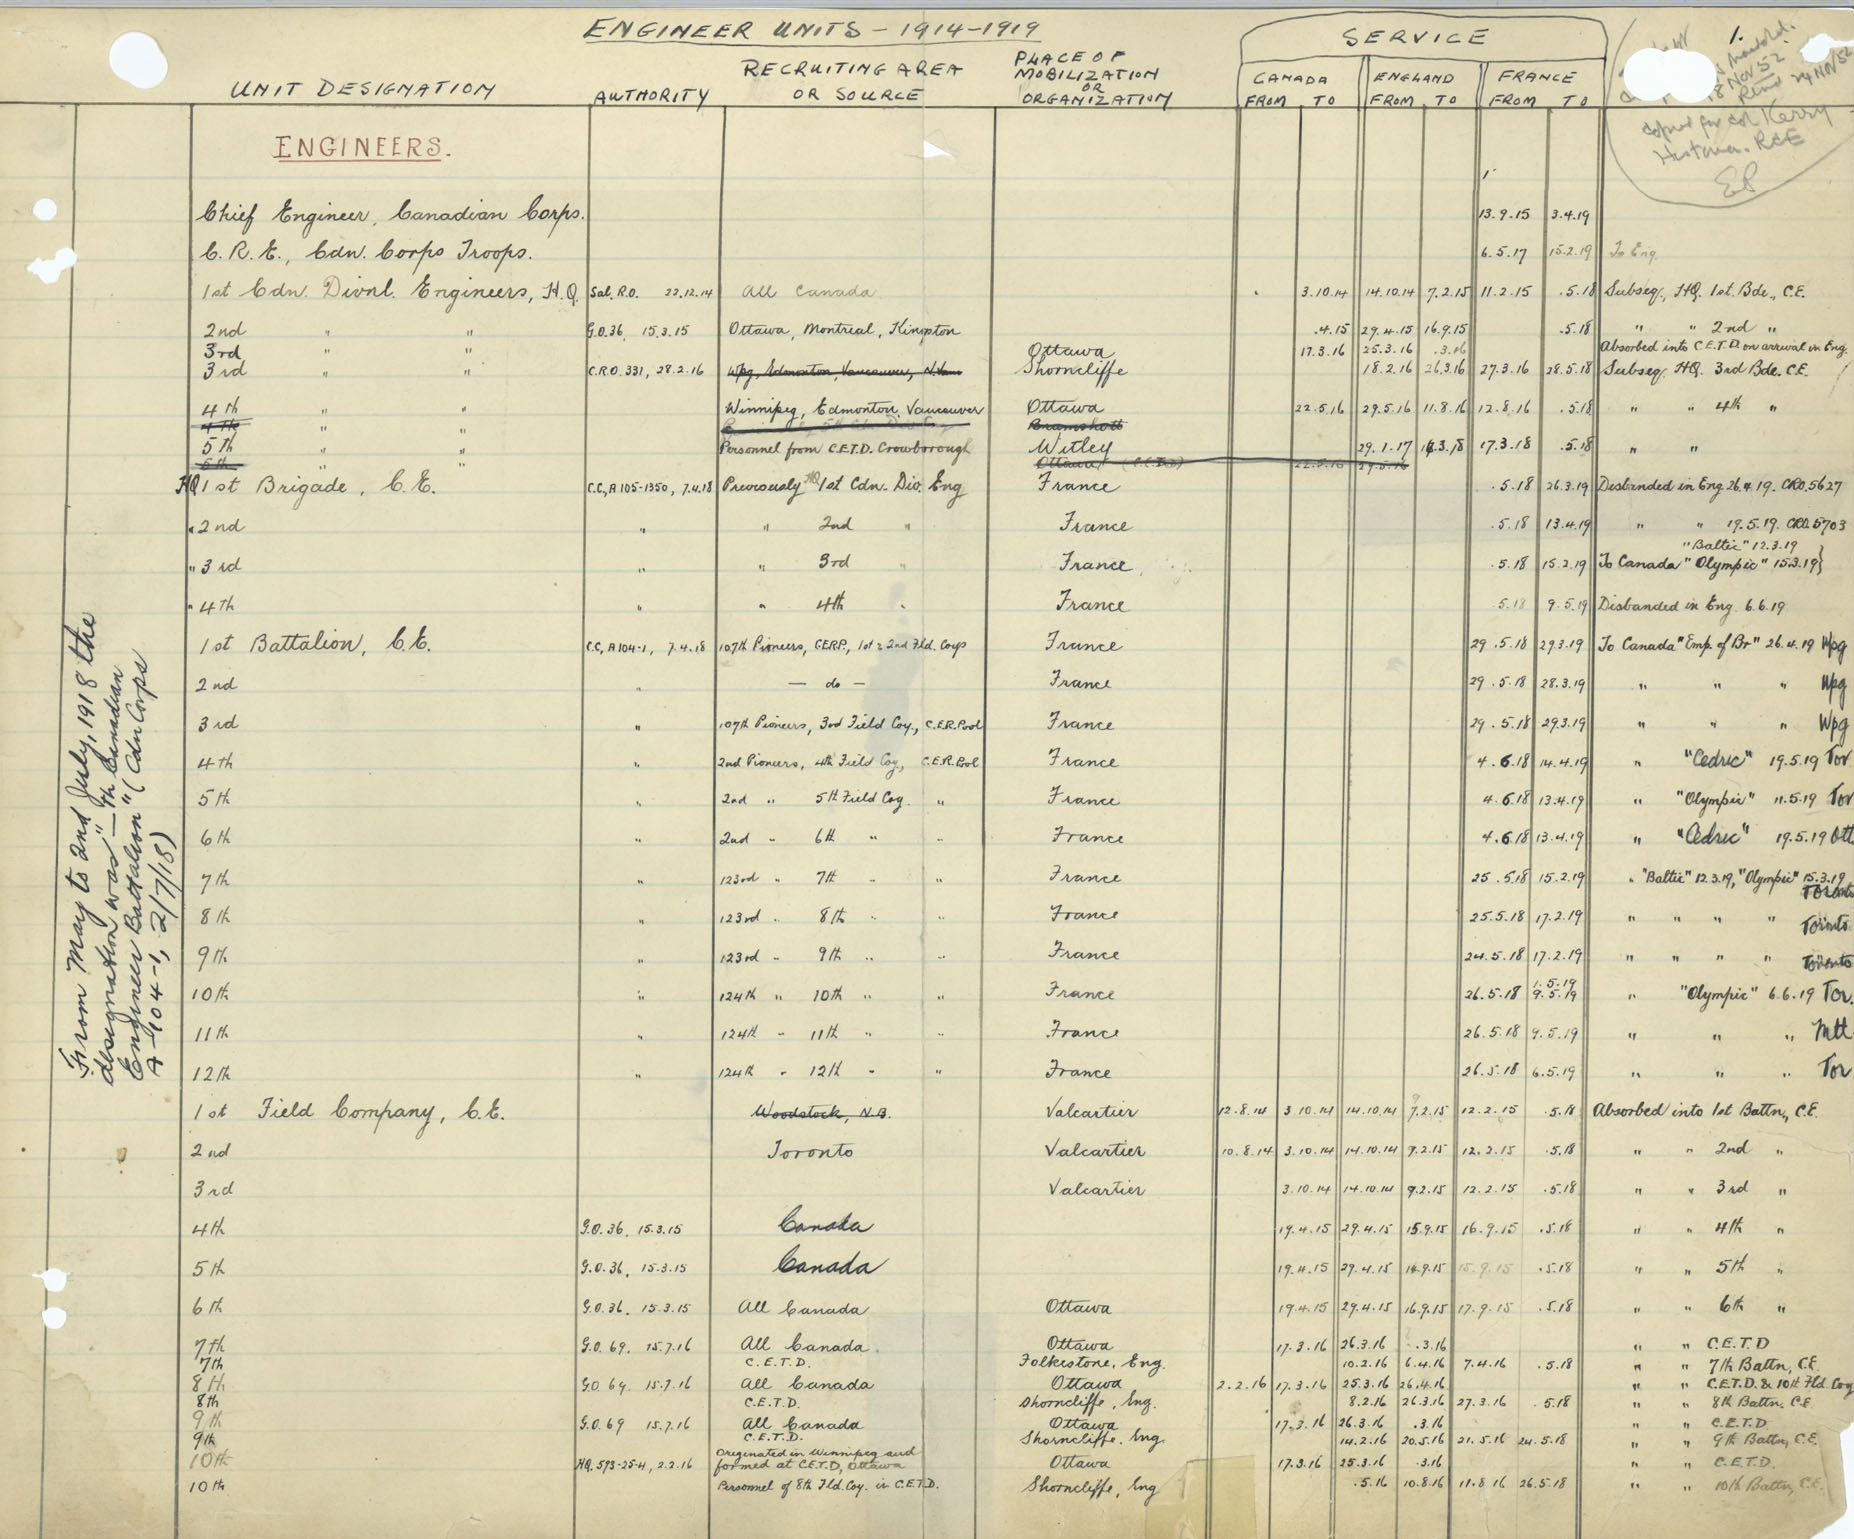 ENGINEER UNITS – 1914–1919
1.
SERVICE
UNIT DESIGNATION AUTHORITY RECRUITING AREA OR SOURCE PLACE OF MOBILIZATION OR ORGANIZATION CANADA FROM TO ENGLAND FROM TO FRANCE FROM TO
18 Nov 52
24 Nov/52
Copied for Col Kerry
Histarian. RCE
EP
ENGINEERS.
Chief Engineer, Canadian Corps. 13.9.15 3.4.19
C.R.E., Cdn. Corps Troops. 6.5.17 15.2.19 To Eng.
1st Cdn. Divnl. Engineers, H.Q. Sal. R.O. 22.12.14 All Canada 3.10.14 14.10.14 7.2.15 11.2.15 .5.18 Subseq., HQ. 1st. Bde., C.E.
2nd " " G.O.36, 15.3.15 Ottawa, Montreal, Kingston .4.15 29.4.15 16.9.15 .5.18 " " 2nd "
3rd Ottawa 17.3.16 25.3.16 .3.16 Absorbed into C.E.T.D. on arrival in Eng.
3rd " " C.R.O. 331, 28.2.16 Wpg, Edmonton, Vancouver, N.Van Shorncliffe 18.2.16 26.3.16 27.3.16 28.5.18 Subseq. HQ. 3rd Bde. C.E.
4th " " Winnipeg, Edmonton, Vancouver Ottawa 22.5.16 29.5.16 11.8.16 12.8.16 .5.18 " " 4th "
4th " " Bramshott
5th " " Personnel from C.E.T.D. Crowborough Witley 29.1.17 16.3.18 17.3.18 .5.18 " "
5th " " Ottawa (C.E.T.D.) 22.5.16 29.5.16
HQ 1st Brigade, C.E. C.C., A 105-1350, 7.4.18 Previously HQ 1st Cdn. Div. Eng France .5.18 26.3.19 Disbanded in Eng 26.4.19. CRO.5627
" 2nd " " 2nd " France .5.18 13.4.19 " " 19.5.19. CRO.5703
"Baltic" 12.3.19
" 3rd " " 3rd " France .5.18 15.2.19 To Canada "Olympic" 15.3.19}
" 4th " " 4th " France 5.18 9.5.19 Disbanded in Eng. 6.6.19
1st Battalion, C.E. C.C, A104-1, 7.4.18 107th Pioneers, C.E.R.P., 1st & 2nd Fld. Coys France 29.5.18 29.3.19 To Canada "Emp. of Br" 26.4.19 Wpg
2nd " — do — France 29.5.18 28.3.19 " " " Wpg
3rd " 107th Pioneers, 3rd Field Coy., C.E.R.Pool France 29.5.18 29.3.19 " " " Wpg
4th " 2nd Pioneers, 4th Field Coy, C.E.R.Pool France 4.6.18 14.4.19 " "Cedric" 19.5.19 Tor
5th " 2nd " 5th Field Coy. " France 4.6.18 13.4.19 " "Olympic" 11.5.19 Tor
6th " 2nd " 6th " " France 4.6.18 13.4.19 " "Cedric" 19.5.19 Ott
7th " 123rd " 7th " " France 25.5.18 15.2.19 " "Baltic" 12.3.19, "Olympic" 15.3.19 Toronto
8th " 123rd " 8th " " France 25.5.18 17.2.19 " " " " Toronto
9th " 123rd " 9th " " France 24.5.18 17.2.19 " " " " Toronto
10th " 124th " 10th " " France 26.5.18 1.5.19 9.5.19 " "Olympic" 6.6.19 Tor.
11th " 124th " 11th " " France 26.5.18 9.5.19 " " " Mtl
12th " 124th " 12th " " France 26.5.18 6.5.19 " " " Tor
From May to 2nd July, 1918 the
designation was "—th Canadian
Engineer Battalion" (Cdn Corps
A-104-1, 2/7/18)
1st Field Company, C.E. Woodstock, N.B. Valcartier 12.8.14 3.10.14 14.10.14 7.2.15 12.2.15 .5.18 Absorbed into 1st Battn., C.E.
2nd Toronto Valcartier 10.8.14 3.10.14 14.10.14 9.2.15 12.2.15 .5.18 " " 2nd "
3rd Valcartier 3.10.14 14.10.14 9.2.15 12.2.15 .5.18 " " 3rd "
4th G.O.36, 15.3.15 Canada 19.4.15 29.4.15 15.9.15 16.9.15 .5.18 " " 4th "
5th G.O.36, 15.3.15 Canada 19.4.15 29.4.15 14.9.15 15.9.15 .5.18 " " 5th "
6th G.O.36. 15.3.15 All Canada Ottawa 19.4.15 29.4.15 16.9.15 17.9.15 .5.18 " " 6th "
7th G.O. 69. 15.7.16 All Canada Ottawa 17.3.16 26.3.16 .3.16 " " C.E.T.D
7th C.E.T.D. Folkestone, Eng. 10.2.16 6.4.16 7.4.16 .5.18 " " 7th Battn, C.E.
8th G.O. 69. 15.7.16 All Canada Ottawa 2.2.16 17.3.16 25.3.16 26.4.16 " " C.E.T.D. & 10th Fld. Coy
8th C.E.T.D. Shorncliffe, Eng. 8.2.16 26.3.16 27.3.16 .5.18 " " 8th Battn. C.E.
9th G.O. 69 15.7.16 All Canada Ottawa 17.3.16 26.3.16 .3.16 " " C.E.T.D
9th C.E.T.D. Shorncliffe. Eng. 14.2.16 20.5.16 21.5.16 24.5.18 " " 9th Battn, C.E.
10th HQ. 593-25-4, 2.2.16 Originated in Winnipeg and formed at C.E.T.D, Ottawa Ottawa 17.3.16 25.3.16 .3.16 " " C.E.T.D.
10th Personnel of 8th Fld. Coy. in C.E.T.D. Shorncliffe, Eng .5.16 10.8.16 11.8.16 26.5.18 " " 10th Battn, C.E.